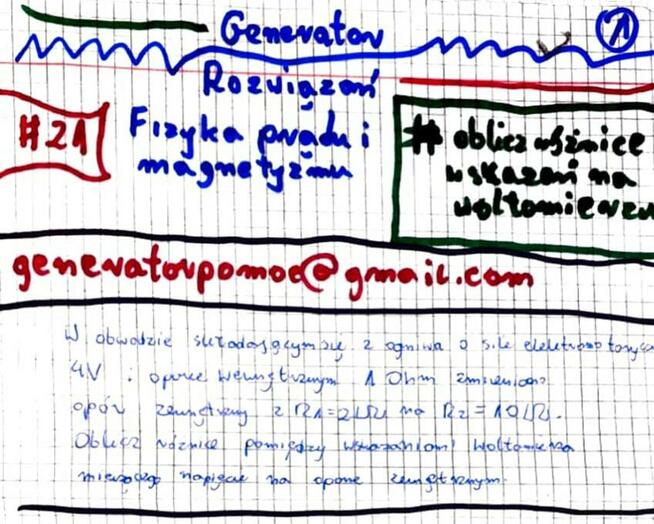 Generator
1
Rozwiązań
#21
Fizyka prądu i
magnetyzmu
# oblicz różnice
wskazań na
woltomierzu
generatorpomoc@gmail.com
W obwodzie składającym się z ogniwa o sile elektromotorycz
4V i oporze wewnętrznym 1 Ohm zmieniono
opór zewnętrzny z R1=2Ω na R2=10Ω.
Oblicz różnice pomiędzy wskazaniami woltomierza
mierzącego napięcie na oporze zewnętrznym.